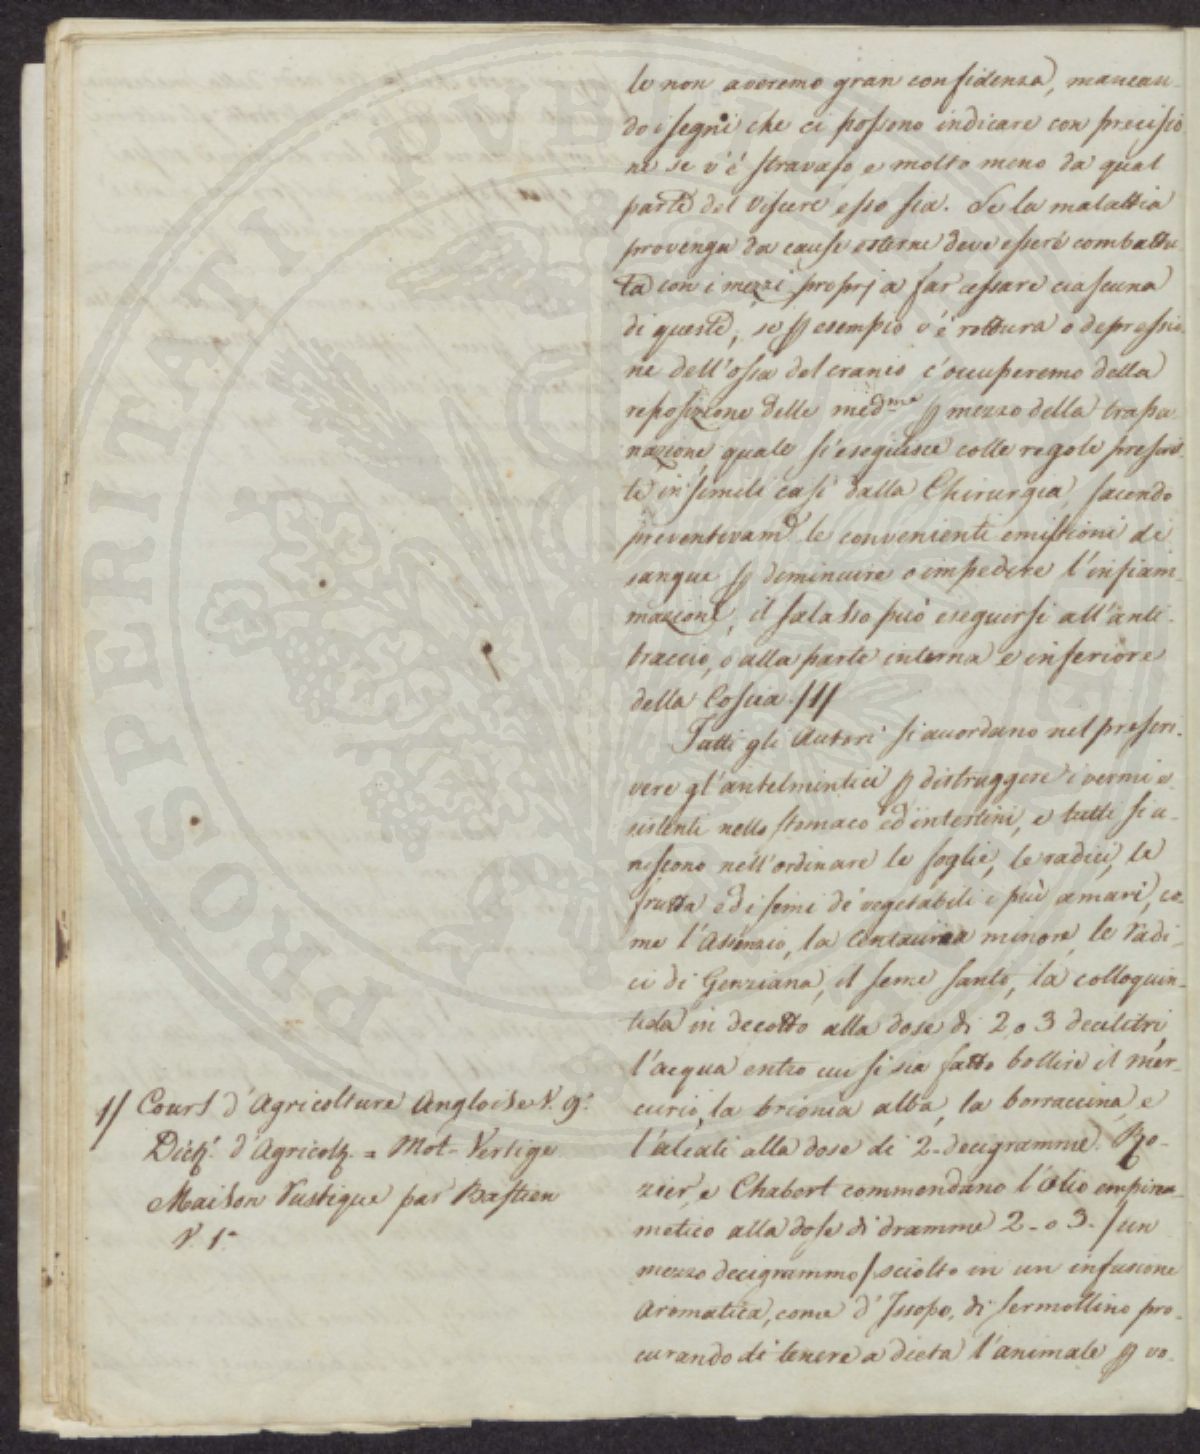 le non averemo gran confidenza, mancan-
do i segni che ci possono indicare con precisio
ne se v'è stravaso, e molto meno da qual
parte del viscere esso sia. Se la malattia
provenga da cause esterne deve essere combattu
ta con i mezzi proprj a far cessare ciascuna
di queste, se p esempio v'è rottura o depressio-
ne dell'ossa del cranio c'occuperemo della
reposizione delle medme p mezzo della trapa-
nazione, quale si eseguisce colle regole prescrit-
te in simili casi dalla Chirurgia, facendo
preventivamte le convenienti emissioni di
sangue p diminuire o impedire l'infiam-
mazione, il salasso può eseguirsi all'anti-
braccio, o alla parte interna e inferiore
della Coscia /1/
Tutti gli Autori si accordano nel prescri-
vere gl'antelmintici p distruggere i vermi e-
sistenti nello stomaco ed intestini, e tutti si u-
niscono nell'ordinare le foglie, le radici, le
frutta ed i semi de vegetabili i più amari, co-
me l'Assenzio, la Centaurea minore, le radi-
ci di Genziana, il seme santo, la colloquin-
tida in decotto alla dose di 2 o 3 decilitri,
l'acqua entro cui si sia fatto bollire il mer-
curio, la brionia alba, la borraccina, e
l'alcali alla dose di 2- decigramme. Ro-
zier, e Chabert commendano l'Olio empireu-
matico alla dose di dramme 2- o 3- / un
mezzo decigrammo / sciolto in un infusione
Aromatica, come d'Issopo, di sermollino pro-
curando di tenere a dieta l'animale p vo-
1/ Cours d'Agricolture Angloise V. 9.
Dicti. d'Agricoltr. = Mot- Vertige
Maison rustique par Bastien
V. 1.
PROSPERITATI PUBLICAE